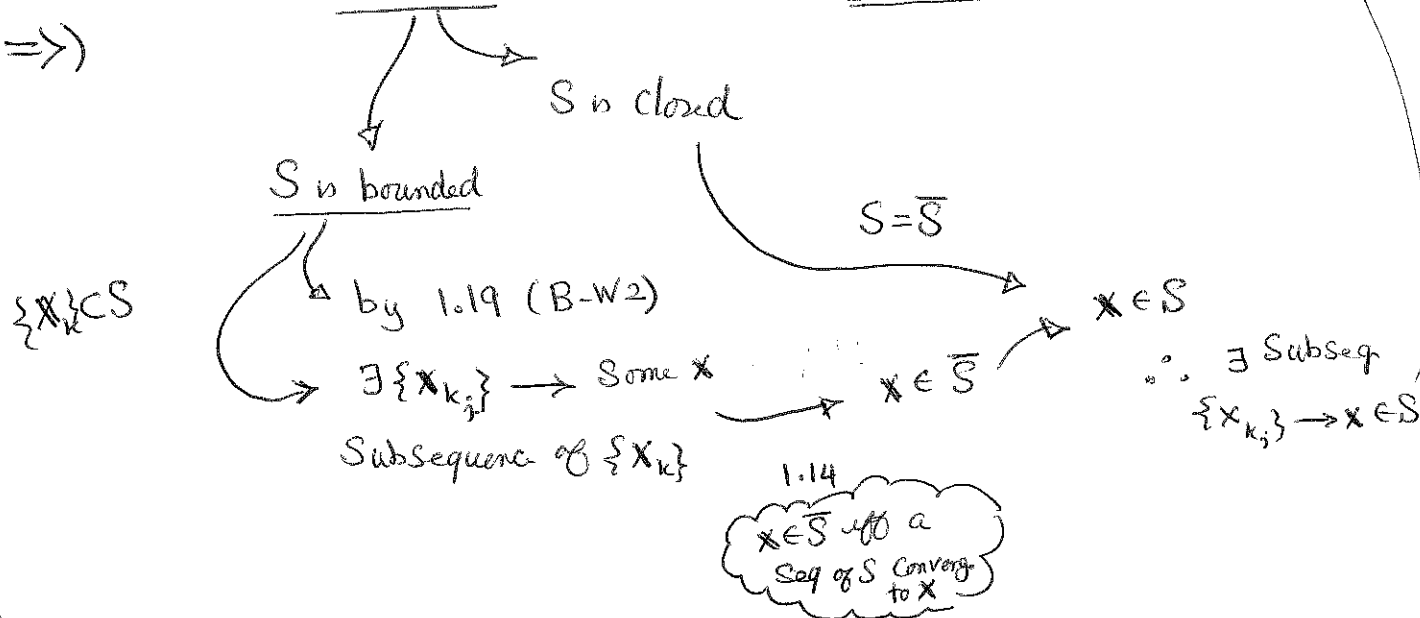 =>)
S is closed
S is bounded
S = S̅
{x_k} ⊂ S
by 1.19 (B-W2)
∃ {x_{k_j}} → Some x
x ∈ S̅
x ∈ S
∴ ∃ Subseq
{x_{k_j}} → x ∈ S
Subsequence of {x_k}
1.14
x ∈ S̅ iff a
Seq of S Converg.
to x